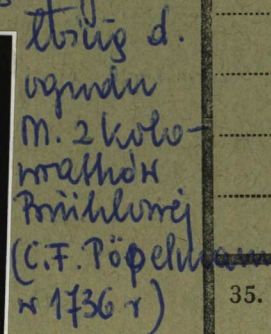 d.
ogrodu
M. z Koło-
wrathów
Brühlowej
(C.F. Pöpelmann
w 1736 r)
35.